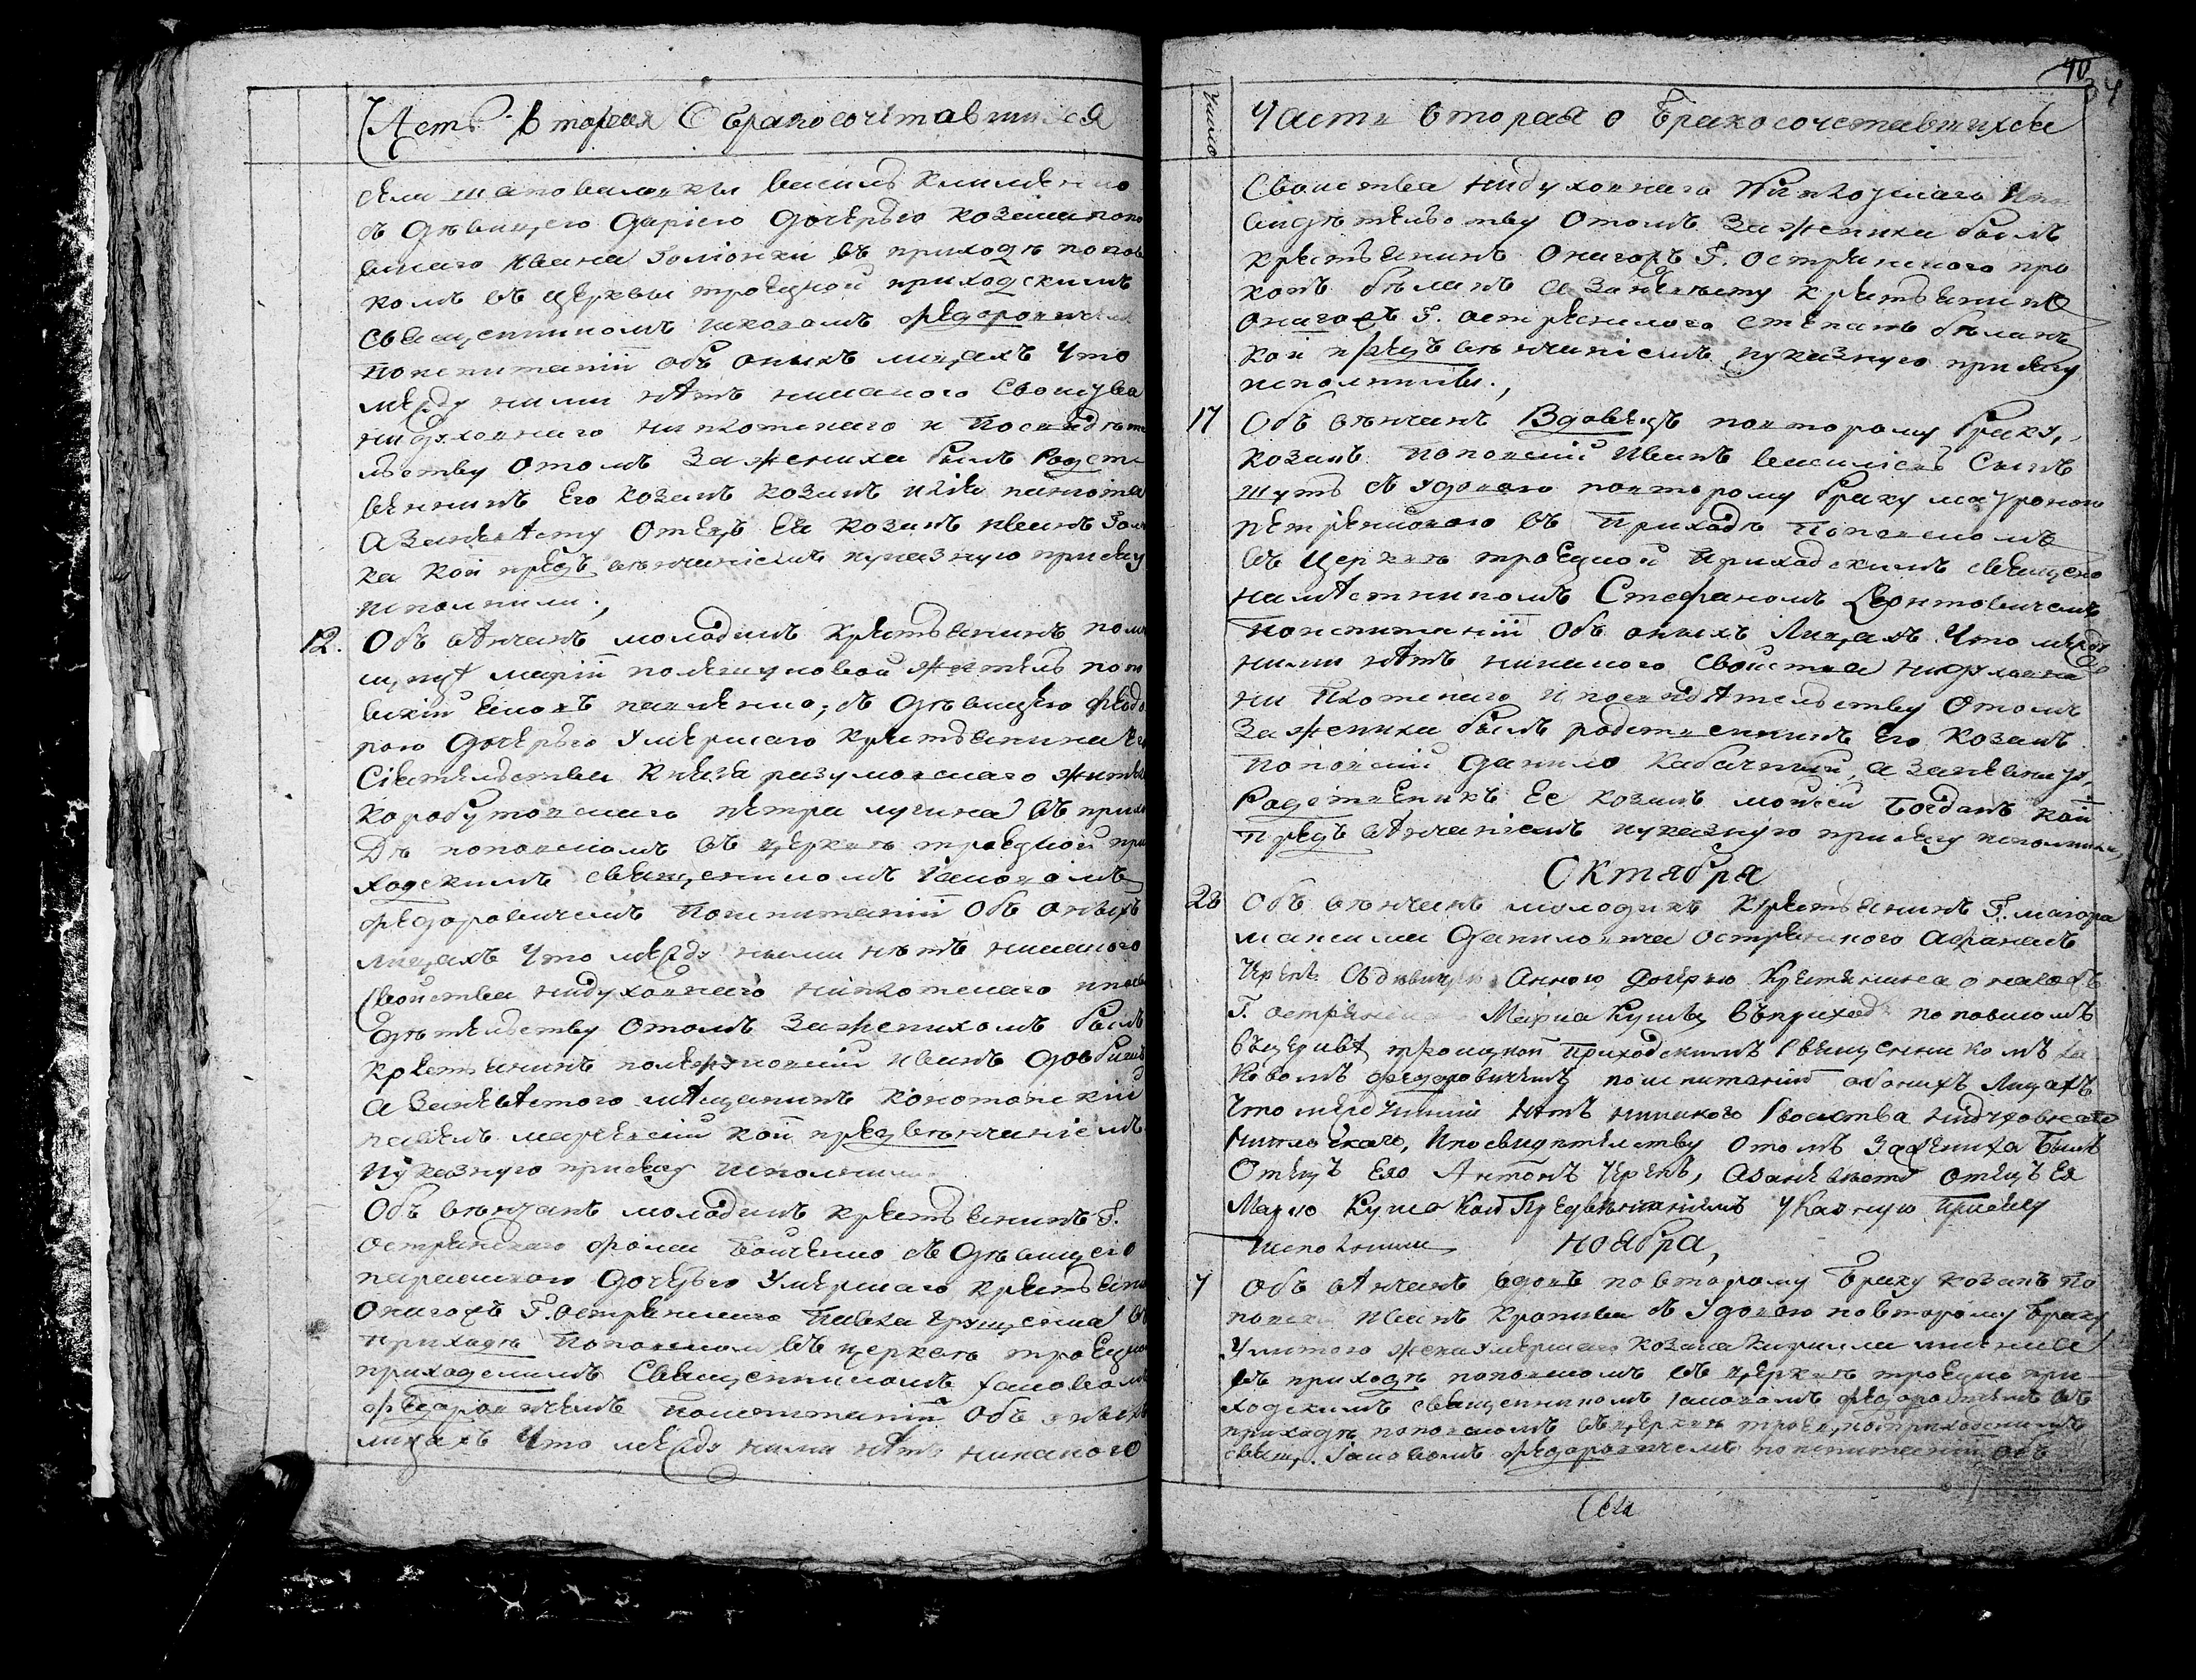 Часть Вторая О бракосочетавшихся
села шаповаловки василь клименко
съ дѣвицею Даріею дочерью козака попо
вскаго Ивана Голіонки въ приходѣ попов
комъ въ церквы троецкой приходскимъ
священникомъ иаковомъ федоровичемъ
поиспитаніи объ оныхъ лицахъ что
между ними нѣтъ никакого своиства
нидуховнаго ниплотскаго и посвидѣте
льству отомъ зажениха былъ родст
венникъ его козакъ
а заневѣсту отецъ ея козакъ иванъ Гол
ка кои предъ вѣнчаніемъ иуказную присягу
исполнили.,
12. Объ вѣнчанъ молодикъ крестьянинъ пом
щицѣ маріи полежаковой житель попо
вскій павленко, съ дѣвицею федо
рою дочерью умершаго крестьянина его
Сіятельства Князя разумовскаго жителя
коробутовскаго петра лугина въ прихо
дѣ поповскомъ въ церквѣ троецкой при
ходскимъ священникомъ іаковомъ
федоровичемъ поиспитаніи Объ оныхъ
лицахъ что между ними нѣтъ никакого
своиства нидуховнаго ниплотскаго ипосви
дѣтельству отомъ зажениха былъ
крестьянинъ иванъ
а заневѣстою мѣщанинъ конотопскій
павелъ кои предъ вѣнчаніемъ
иуказную присягу исполнили
Объ вѣнчанъ молодикъ крестьянинъ Г.
Острянскаго фома Бойченко съ дѣвицею
параскою дочерью умершаго крестьяни
Онагожъ Г. острянскаго Павла Грищенка въ
приходѣ поповскомъ въ церквѣ троецкой
приходскимъ священникомъ Іаковомъ
федоровичемъ поиспитаніи Объ оныхъ
лицахъ что между ними нѣтъ никакого
40
Число
Часть вторая о бракосочетавшихся
Своиства нидуховнаго ниплотскаго ипос
видѣтельству отомъ зажениха былъ
крестьянинъ онагожъ Г. острянского про
копъ бѣланъ а заневѣсту крестьянинъ
онагожъ Г. острянского степанъ бѣлань
кои предъ вѣнчаніемъ иуказную присягу
исполнили.,
17 Объ вѣнчанъ Вдовецъ повторому браку,
козакъ поповскій Иванъ василіевъ Сынъ
шутъ съ удовою повторому браку мавроною
петренковою въ приходѣ поповскомъ
въ церквѣ троецкой приходскимъ священо
намѣстникомъ Стефаномъ Леонтовичемъ
поиспитаніи Объ оныхъ Лицахъ что между
ними нѣтъ никакого свойства нидуховна
ни плотскаго и посвидѣтельству отомъ
зажениха былъ родственникъ его козакъ
поповскій Данило Кабачний, а заневѣсту,
Родственикъ ее козакъ моисей Богданъ кои
предъ вѣнчаніемъ иуказную присягу исполнили,
Октября
28 Объ вѣнчанъ молодикъ крестьянинъ Г. маіора
максима даниловича острянского афанасъ
Черепъ Сдѣвицею Анною дочерью крестянина онагожъ
Г. острянскаго Марка Куща въ приходѣ поповскомъ
въцерквѣ троицкой приходскимъ священникомъ Іа
ковомъ федоровичемъ поиспитаніи обонихъ лицахъ
что между ними нѣтъ никакого своиства нидуховнаго
ниплоскаго, ипосвидителству отомъ зажениха былъ
Отецъ его Антонъ Черепъ, азаневѣсту отецъ ея
Марко Куща кои Предвѣнчаніемъ указную присягу
исполнили
Ноября,
7 Объ вѣнчанъ вдовъ повторому браку козакъ по
повски Иванъ Кропива съ удовою повторому браку
Улитою жена умершаго козака кирилла
въ приходѣ поповскомъ въ церквѣ троецко при
ходскимъ священникомъ іаковомъ федоровичемъ въ
приходѣ поповскомъ въ церквѣ троецкой приходскимъ
священ. Іаковомъ федоровичемъ поиспитаніи объ